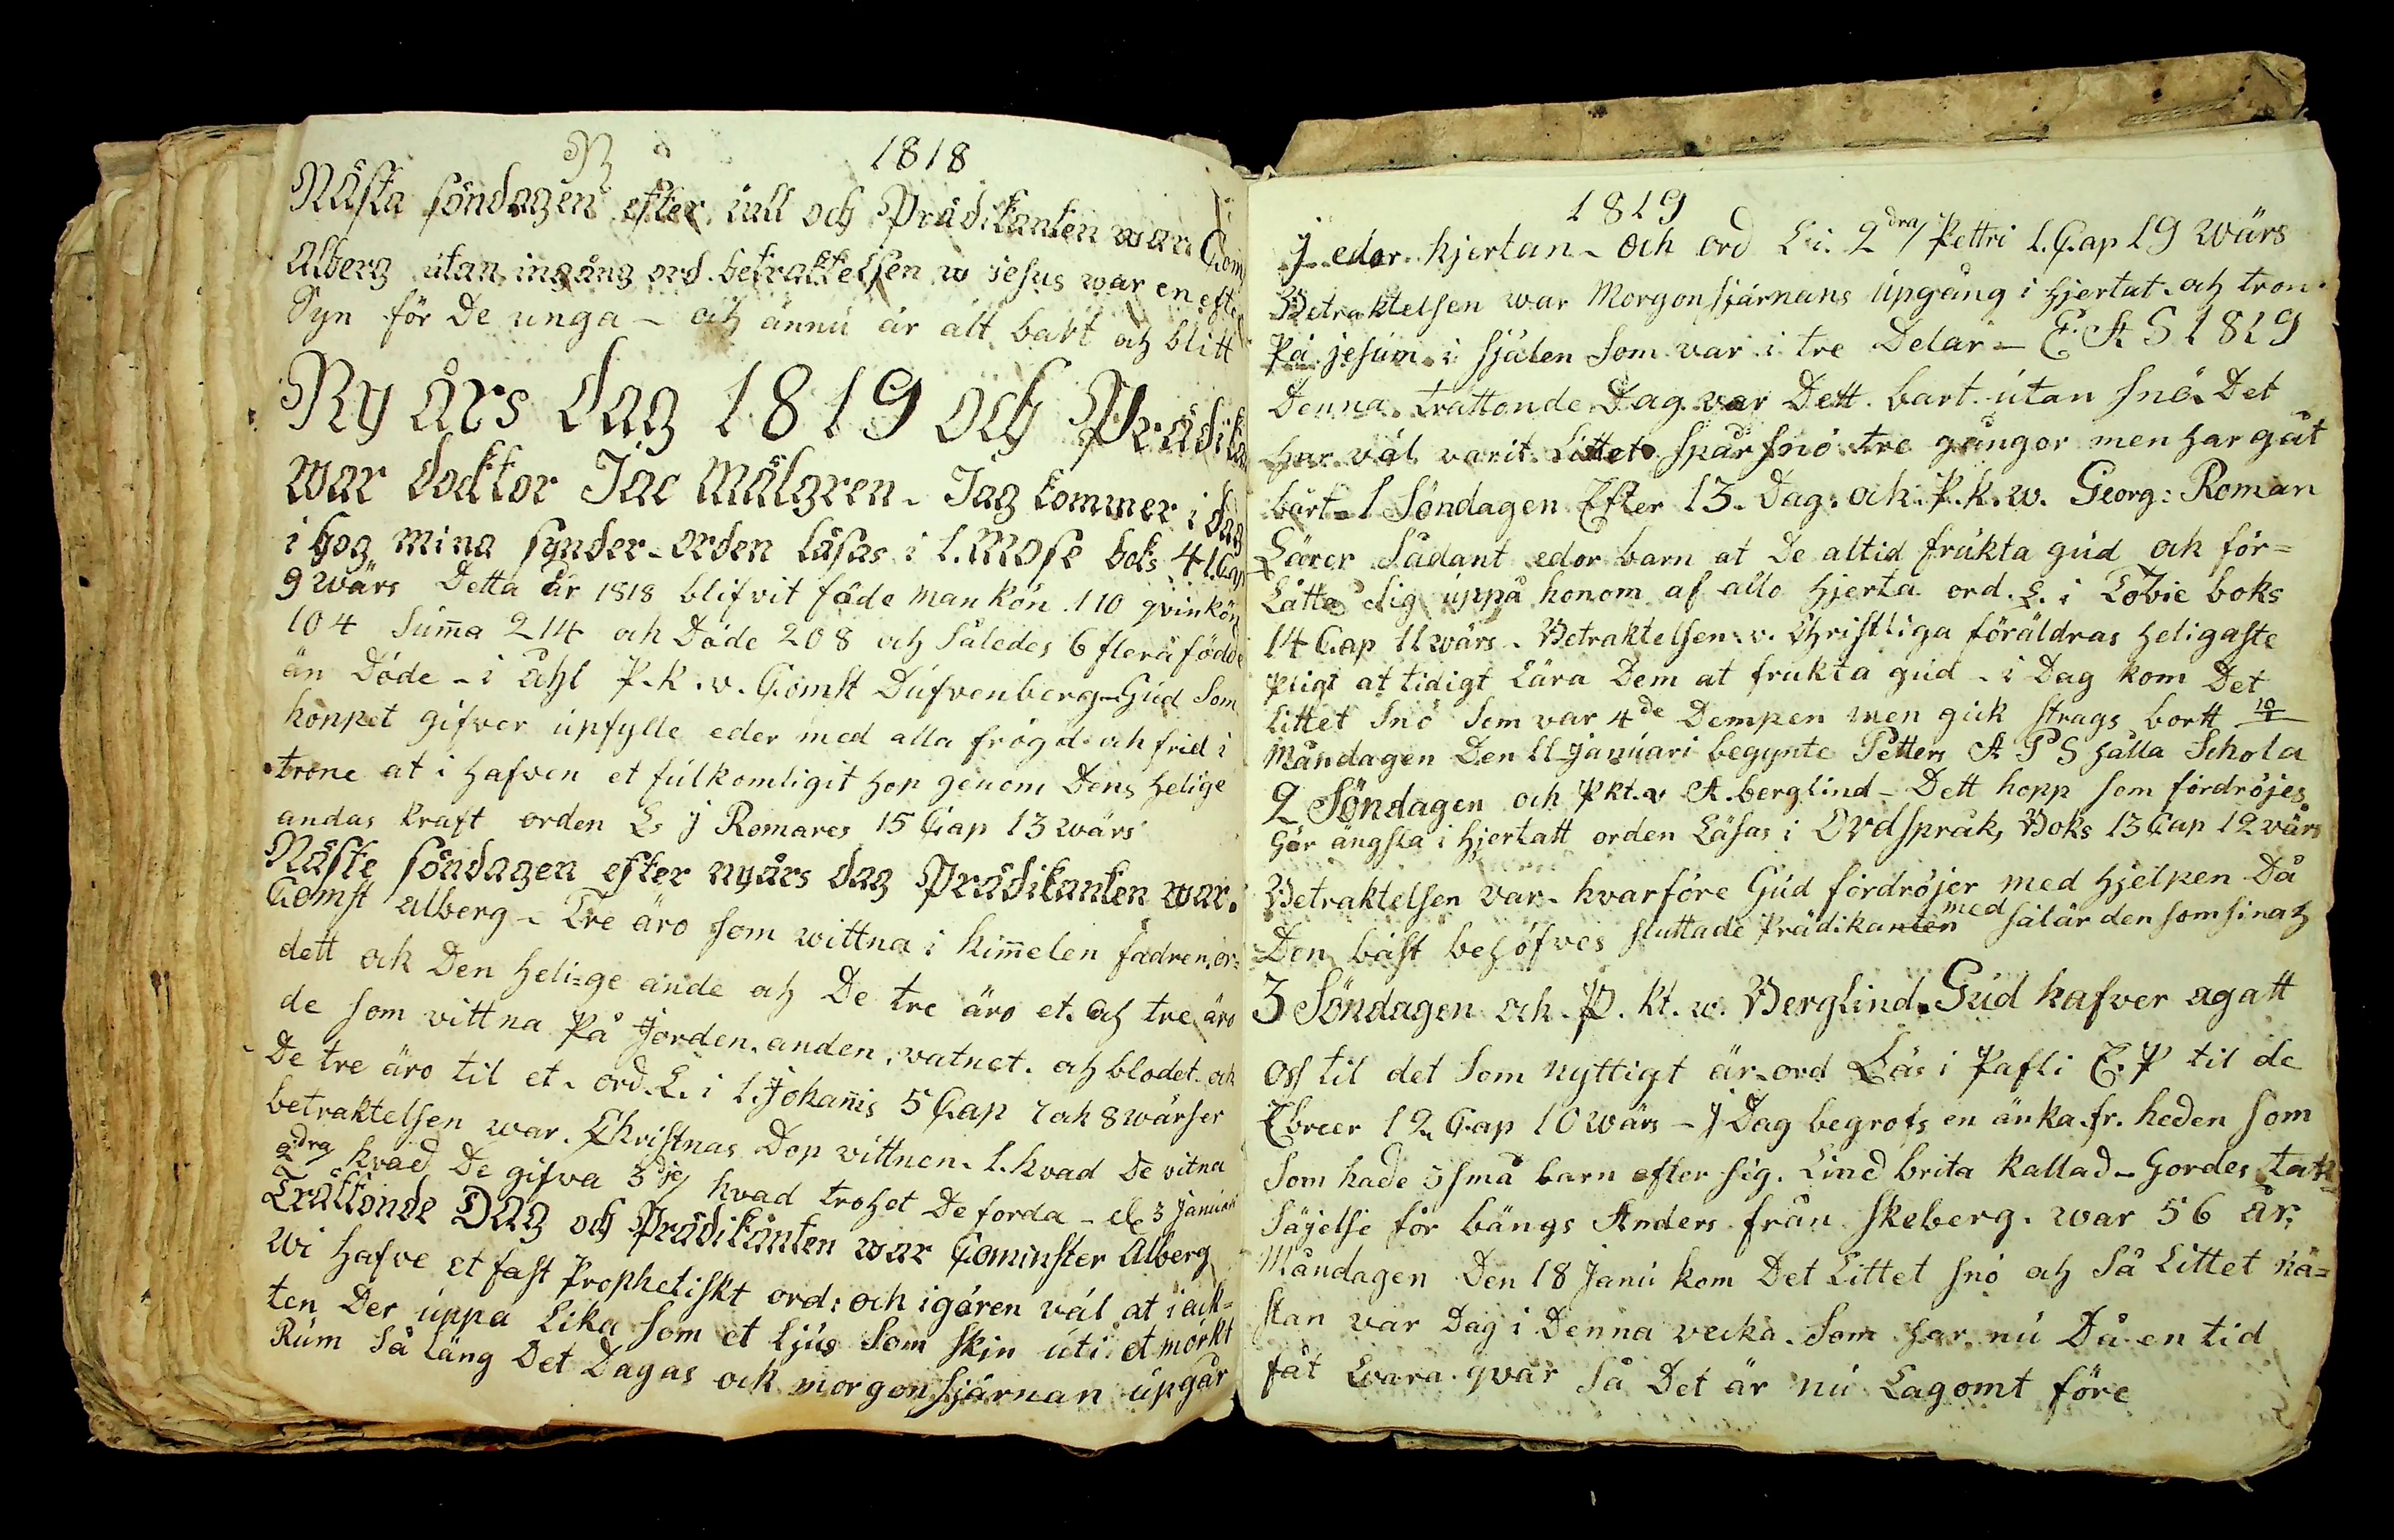 1818
Nästa söndagen efter iull och Prädikanten war Com
Alberg utan ingång ord. betraktelsen w iesus war en efte
Syn för De unga – och ännu är alt bart och blitt
Ny års dag 1819 och Prädika
war doktor Jac Målgren. Jag kommer i dag
i hog mina synder – orden läsas i 1. Mose boks 41 Cap
9 wärs Detta år 1818 blifvit föde mankön 110 qvinkön
104 Sum̄a 214 och Döde 208 och Således 6 flera födde
än Döde – i åhl P. k. v. Comst Dufvenberg – Gud Som
hoppet gifver upfylle eder med alla frögd och frid i
trone at i hafven et fulkomligit hop genom Dens helige
andas kraft orden L. j Romares 15 Cap 13 wärs
Näste söndagen efter nyårs dag Prädikanten war.
Comst alberg – Tre äro som wittna i him̄elen fadren, or=
dett och Den heli=ge ande och De tre äro et. och tre äro
de som vittna På Jorden. anden. vatnet. och blodet. och
De tre äro til et. ord. L. i 1. Johan̄is 5 Cap 7 och 8 wärser
betraktelsen war. Christnas Dop vittnen. 1. hvad De vitna
2dra hvad De gifva 3dje hvad trohet De forda – d 3 Januari
Trättonde DAG och Prädikanten war Cominster Alberg
Wi hafve et fast Prophetiskt ord: och i gören väl at i ack=
ten Der uppa Lika Som et Ljus Som skin uti et mörkt
Rum Så läng Det Dagas ock morgonstjärnan upgår
1819
J eder. hjertan – och ord L. i. 2dra Pettri 1. Cap 19 Wärs
Betraktelsen war Morgonstjärnans upgång i hjertat. och tron.
På jesum. i sjählen Som var i tre Delar – E. A S 1819
Denna. trättonde Dag. var Dett bart. utan snö. Det
har väl varit. Littet spår snö tre gångor men har gåt
bårt – 1 Söndagen Efter 13. Dag. och. P. k. w. Georg: Roman
Lärer Sådant eder barn at De altid frukta gud och för=
Låtta sig uppå honom af allo hjerta ord. L. i Tobie boks
14 Cap 11 wärs. Betraktelsen. v. Christliga föräldras heligaste
pligt at tidigt Lära Dem at frukta gud – i Dag kom Det
Littet Snö Som var 4de Dempen men gick strags bortt 10/1
Måndagen Den 11 januari begynte Petters A P S hålla Schola
2 Söndagen och Pkt. v A. berglind – Dett hopp som fördröjes
Gör ängsla i hjertatt orden Läsas i Ordspråks Boks 13 Cap 12 värs
Betraktelsen var. hvarföre Gud fördröjer med hjelpen Då
Den bäst behöfves sluttade Prädikanten med säl är den som sina h
3 Söndagen och. P. kt. w. Berglind. Gud hafver agatt
Oss til det Som nyttigt är – ord Läs i Pafli E. P til de
Ebreer 12 Cap 10 wärs – J Dag begrofs en änka. fr. heden som
Som hade 5 små barn efter sig. Lind brita kallad – Gordes tak=
Säjelse för bängs Anders från Skeberg. war 56 år.
Måndagen Den 18 Janu kom Det Littet snö och Så Littet nä=
stan var Dag i Denna vecka. Som har nu Då en tid
fåt wara qvar Så Det är nu Lagomt före